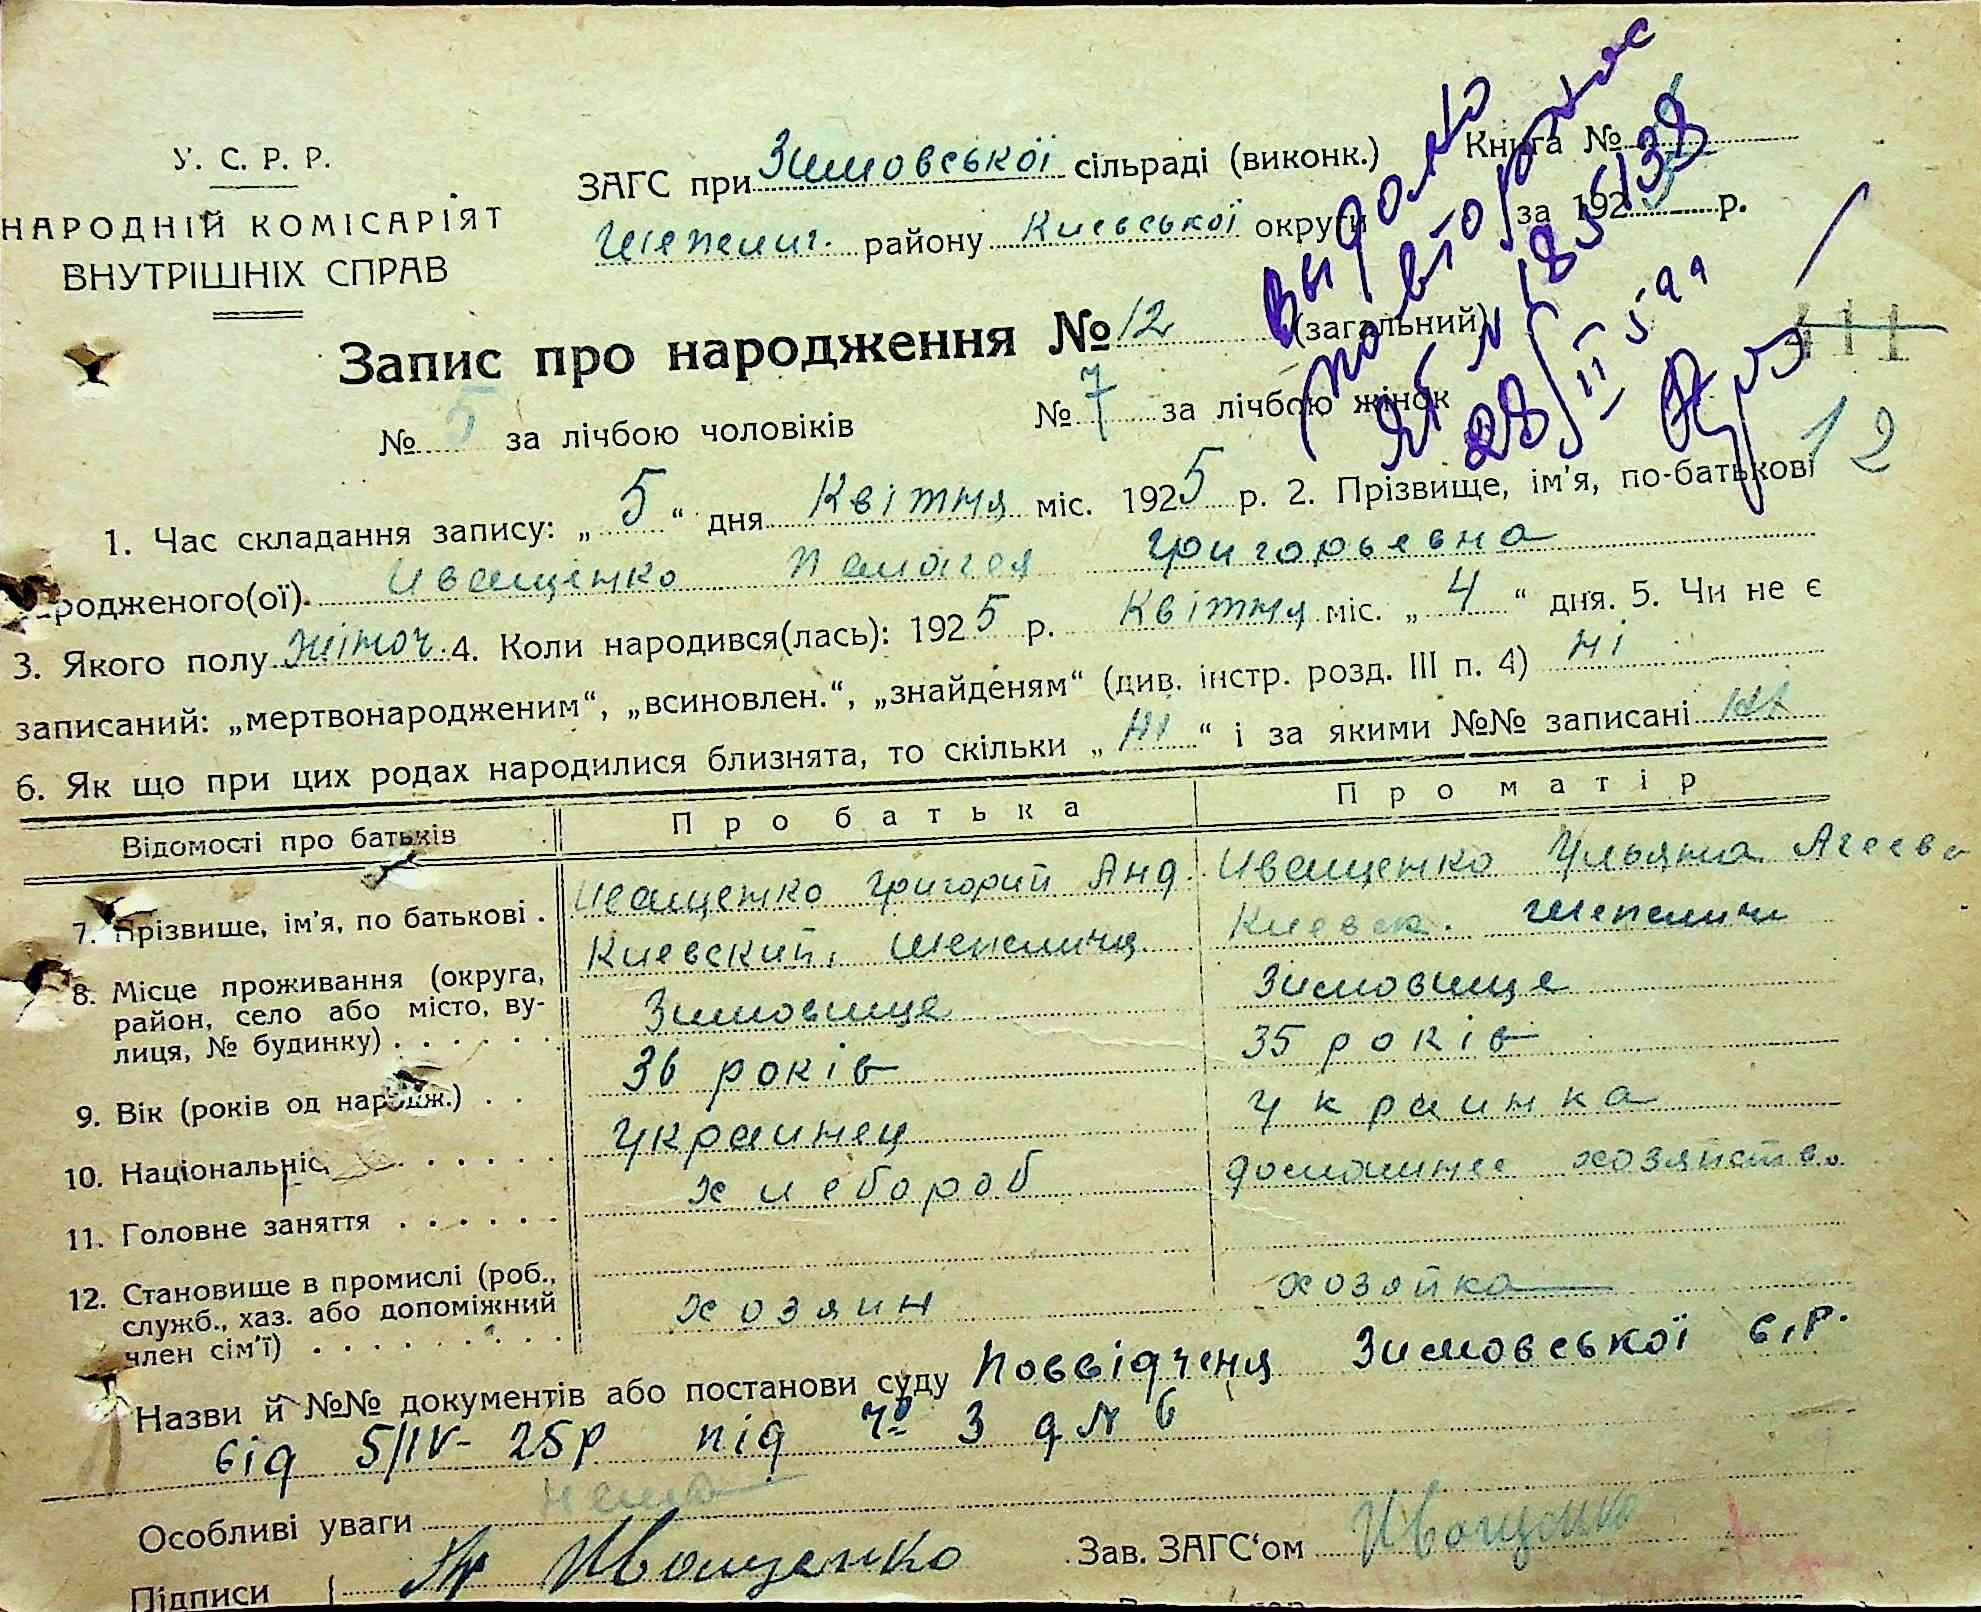 У. С. Р. Р.
НАРОДНІЙ КОМІСАРІЯТ
ВНУТРІШНІХ СПРАВ
ЗАГС при Зимовської сільраді (виконк.) Книга №
Шепелич. району Киевської округи за 192 р.
Запис про народження № 12 (загальний)
№ 5 за лічбою чоловіків № 7 за лічбою жінок
Выдано
повторное
28/II 5
411
12
1. Час складання запису: „ 5 “ дня Квітня міс. 1925 р. 2. Прізвище, ім’я, по-батькові
народженого(ої). Иващенко Пелагея Григорьевна
3. Якого полу жіноч. 4. Коли народився(лась): 1925 р. Квітня міс. „ 4 “ дня. 5. Чи не є
записаний: „мертвонародженим“, „всиновлен.“, „знайденям“ (див. інстр. розд. III п. 4) ні
6. Як що при цих родах народилися близнята, то скільки „ ні “ і за якими №№ записані
Відомості про батьків Про батька Про матір
7. Прізвище, ім’я, по батькові . Иващенко Григорий Анд. Иващенко Ульяна Агеевн
8. Місце проживання (округа, район, село або місто, вулиця, № будинку) . . . . . . Киевский, Шепелича Зимовище Киевск. Шепеличи Зимовище
9. Вік (років од народж.) . . 36 років 35 років
10. Національніс . . . . . . Украинец Украинка
11. Головне заняття . . . . . . хлебороб домашнее хозяйство
12. Становище в промислі (роб., служб., хаз. або допоміжний член сім’ї) . . . . . . . . . хозяин хозяйка
Назви й №№ документів або постанови суду Посвідченя Зимовської с.р.
від 5/IV- 25р під № 3 д № 6
Особливі уваги нема
Підписи Гр Иващенко Зав. ЗАГС‘ом Иващенко